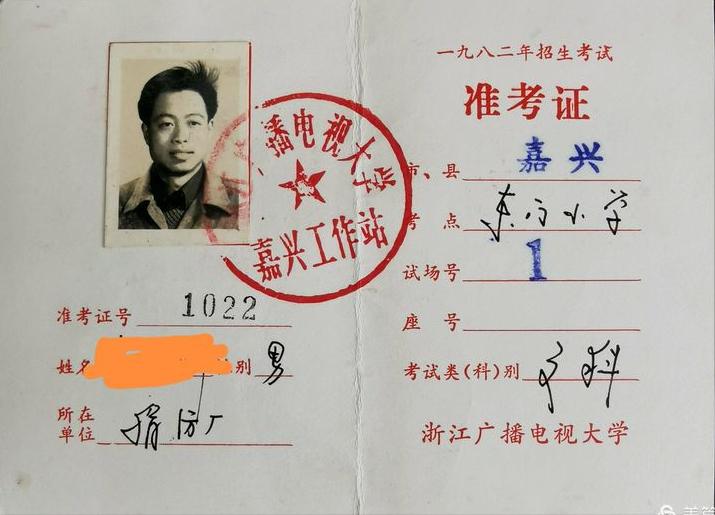 播电视大学
嘉兴工作站
准考证号 1022
姓名 别 男
所在
单位 绢纺厂
一九八二年招生考试
准考证
市、县 嘉兴
考点
小学
试场号 1
座号
考试类(科)别 文科
浙江广播电视大学
美篇